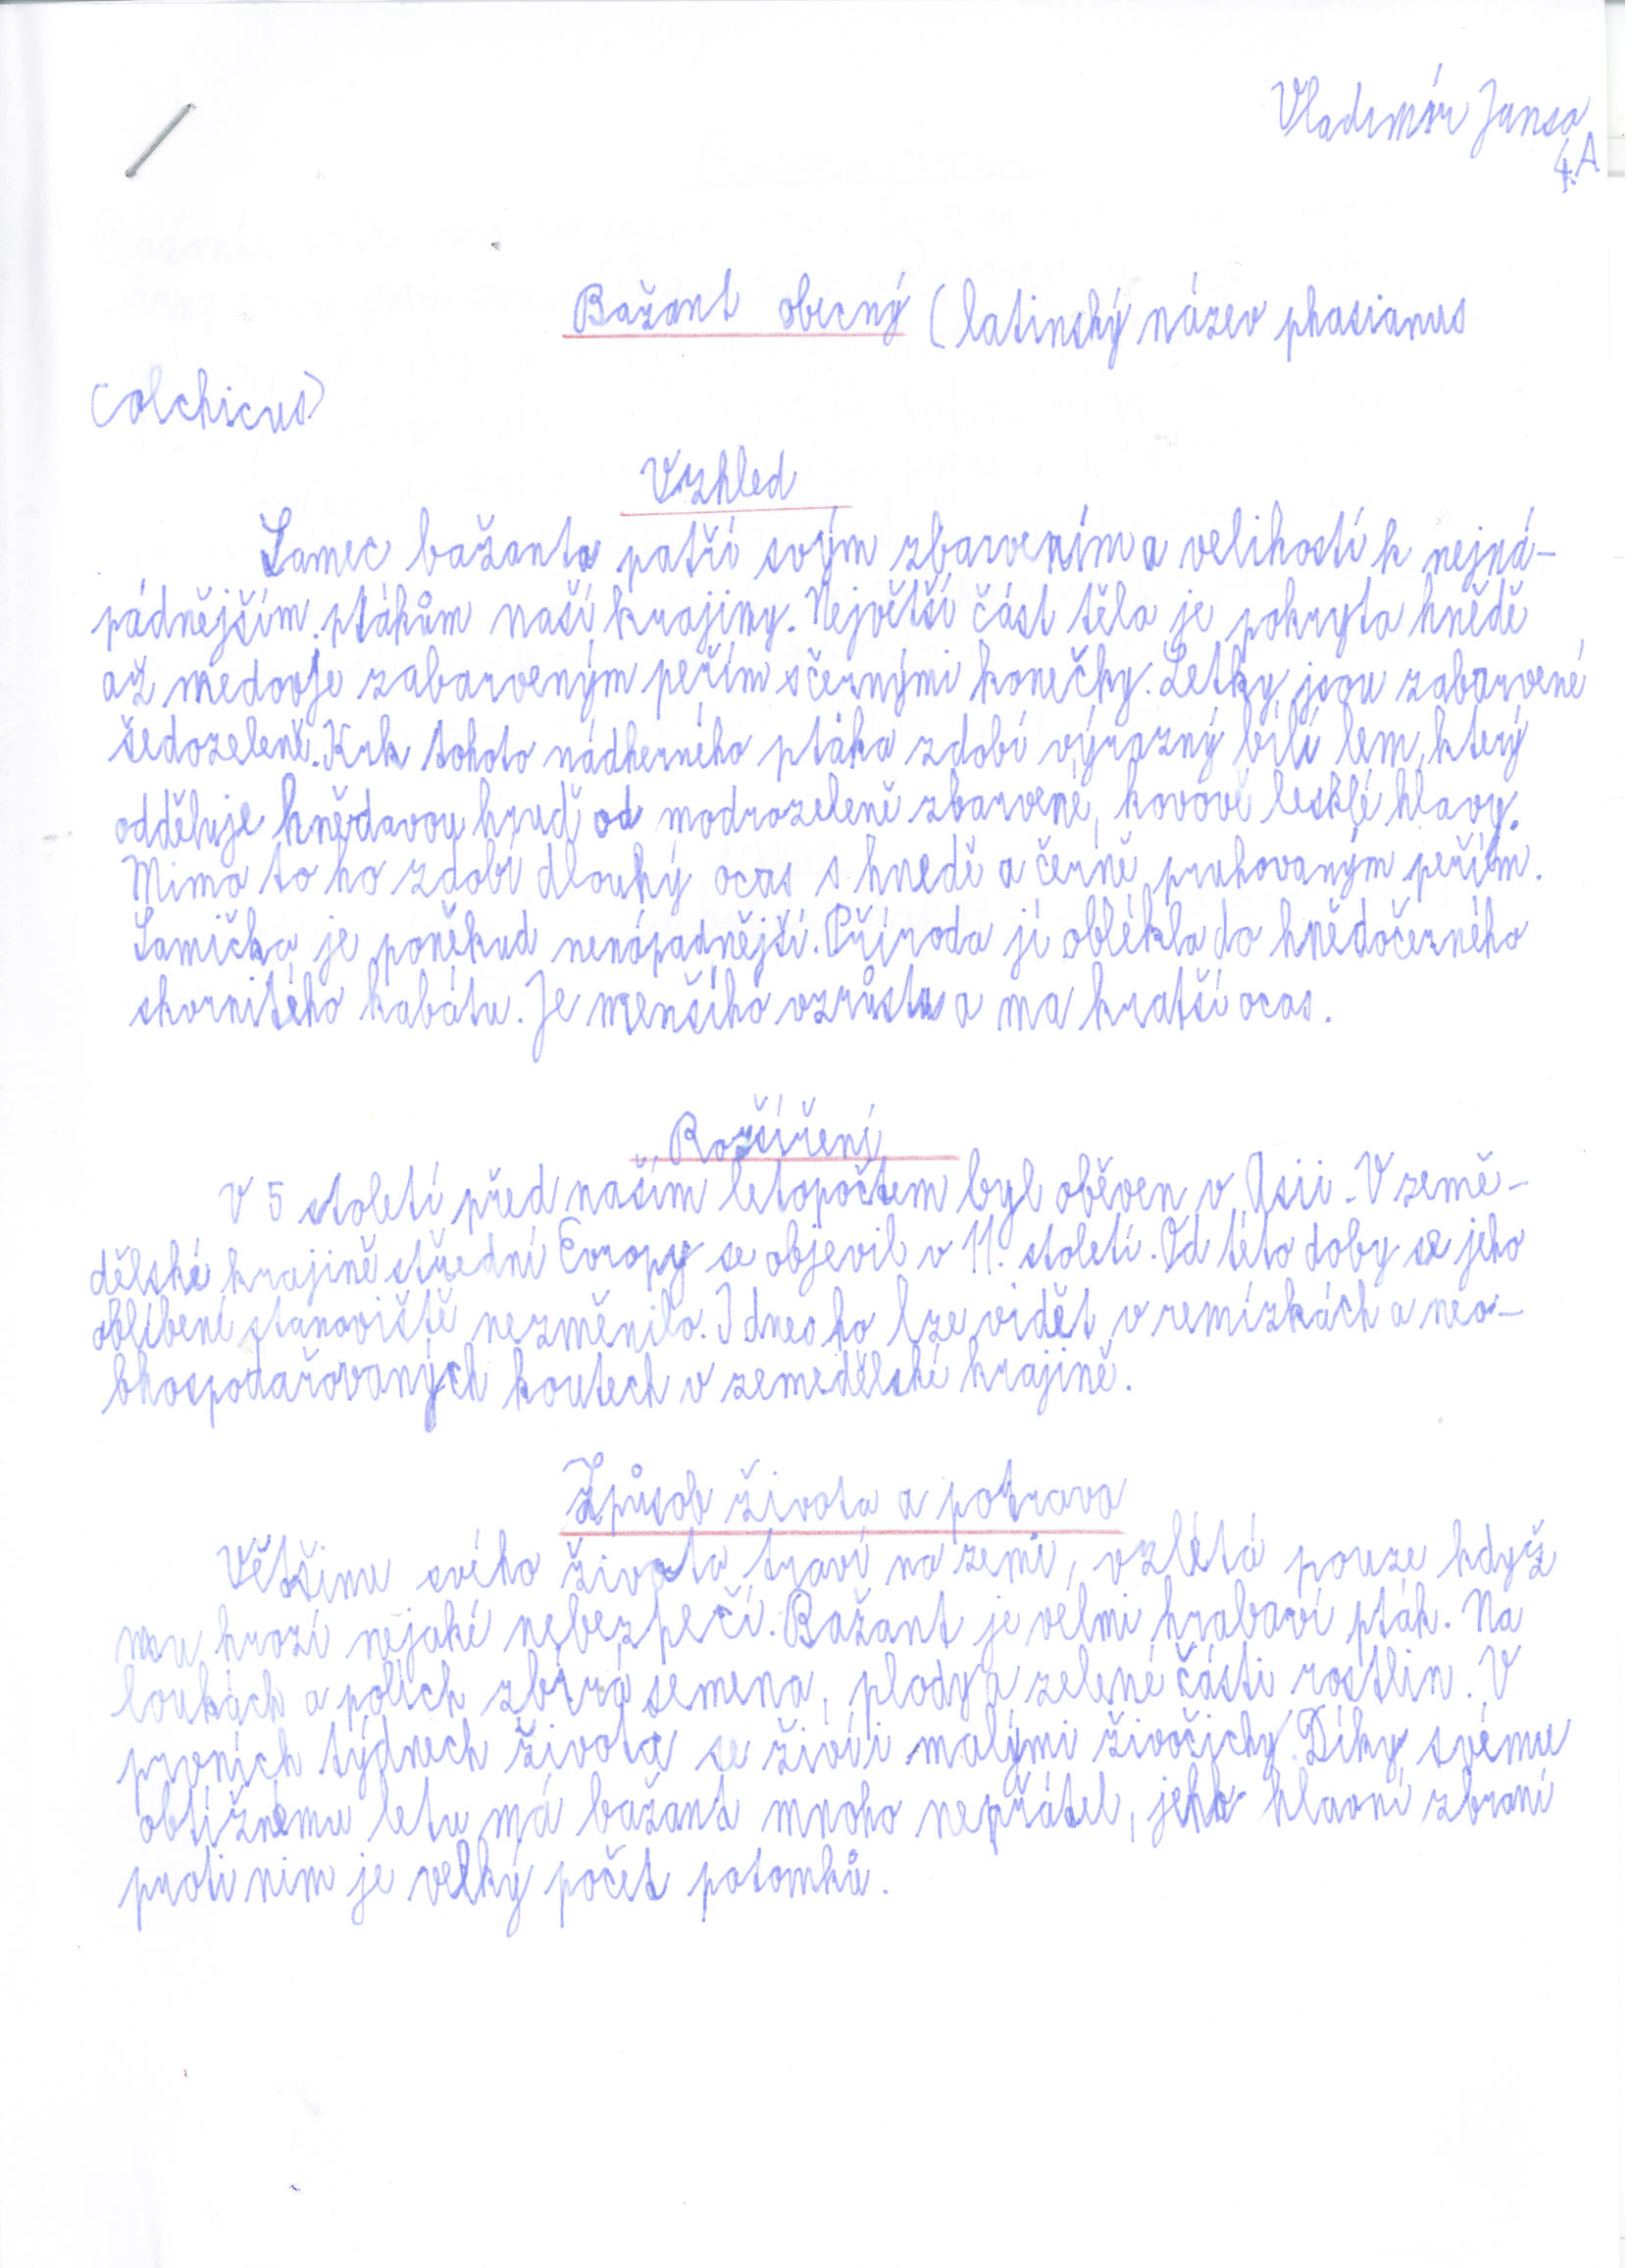 Vladimír Jansa
4.A
Bažant obecný (latinský název phasianus
colchicus)
Vzhled
Samec bažanta patří svým zbarvením a velikostí k nejná-
pádnějším ptákům naší krajiny. Největší část těla je pokryta hnědě
až medově zabarveným peřím s černými konečky. Letky jsou zabarvené
šedozeleně. Krk tohoto nádherného ptáka zdobí výrazný bílí lem, který
odděluje hnědavou hruď od modrozeleně zbarvené, kovově lesklé hlavy.
Mimo to ho zdobí dlouhý ocas s hnedě a černě pruhovaným peřím.
Samička je poněkud nenápadnější. Příroda ji oblékla do hnědočerného
skvrnitého kabátu. Je menšího vzrůstu a ma kratší ocas.
Rozšíření
V 5 století před naším letopočtem byl oběven v Asii. V země-
dělské krajině střední Evropy se objevil v 11. století. Od této doby se jeho
oblíbené stanoviště nezměnilo. I dnes ho lze vidět v remízkách a neo-
bhospodařovaných koutech v zemedělské krajině.
Způsob života a potrava
Většinu svého života traví na zemi, vzlétá pouze když
mu hrozí nějaké nebezpečí. Bažant je velmi hrabaví pták. Na
loukách a polích zbírá semena, plody a zelené části rostlin. V
prvních týdnech života se živí i malými živočichy. Díky svému
obtížnému letu má bažant mnoho nepřátel, jeho hlavní zbraní
proti nim je velký počet potomků.